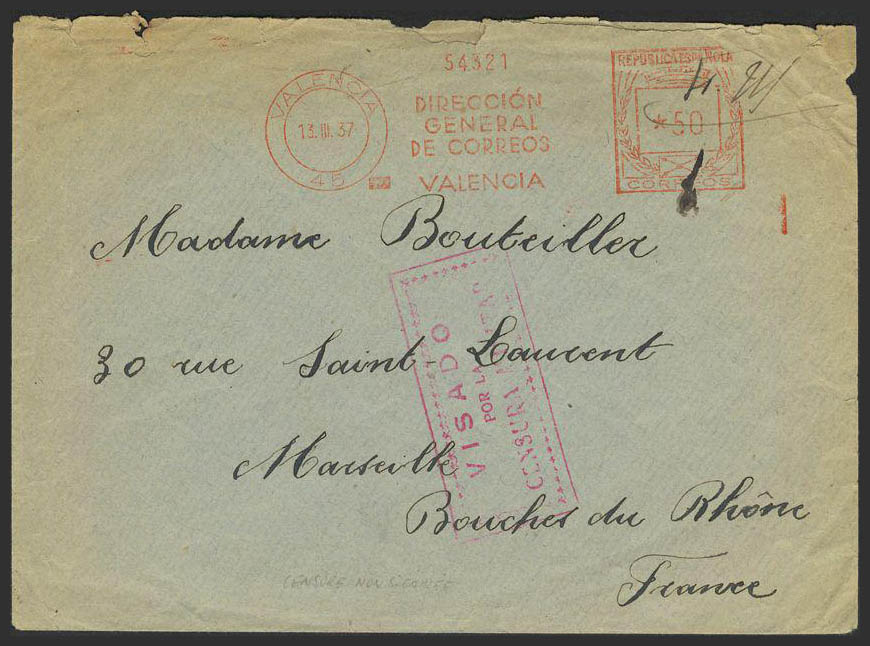 54321
VALENCIA
13. III. 37
45
DIRECCIÓN
GENERAL
DE CORREOS
VALENCIA
REPUBLICA ESPAÑOLA
*50
CORREOS
Madame Bouteiller
30 rue Saint-Laurent
Marseille
Bouches du Rhône
France
VISADO
POR LA
CENSURA MILITAR
CENSURE NON